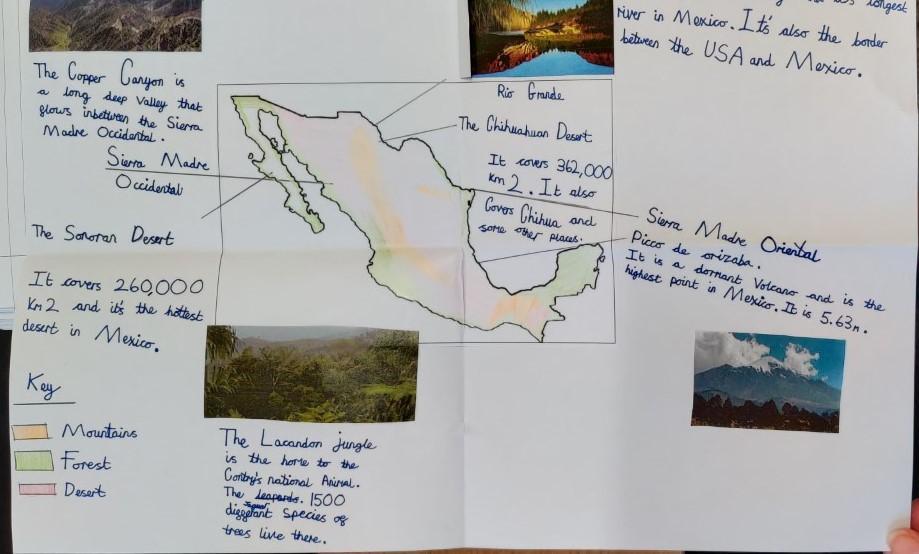 longest
river in Mexico. It's also the border
between the USA and Mexico.
The Copper Canyon is
a long deep Valley that
flows inbetween the Sierra
Madre Occidental.
Rio Grande
The Chihuahuan Desert
It covers 362,000
km 2. It also
Covers Chihua and
some other places.
Sierra Madre
Occidental
The Sonoran Desert
It covers 260,000
km 2 and it's the hottest
desert in Mexico.
Sierra Madre Oriental
Picco de orizaba.
It is a dormant Volcano and is the
highest point in Mexico. It is 5.63m.
Key
Mountains
Forest
Desert
The Lacandon jungle
is the home to the
Contry's national Animal.
The leapards. 1500
diggerant species og
trees live there.